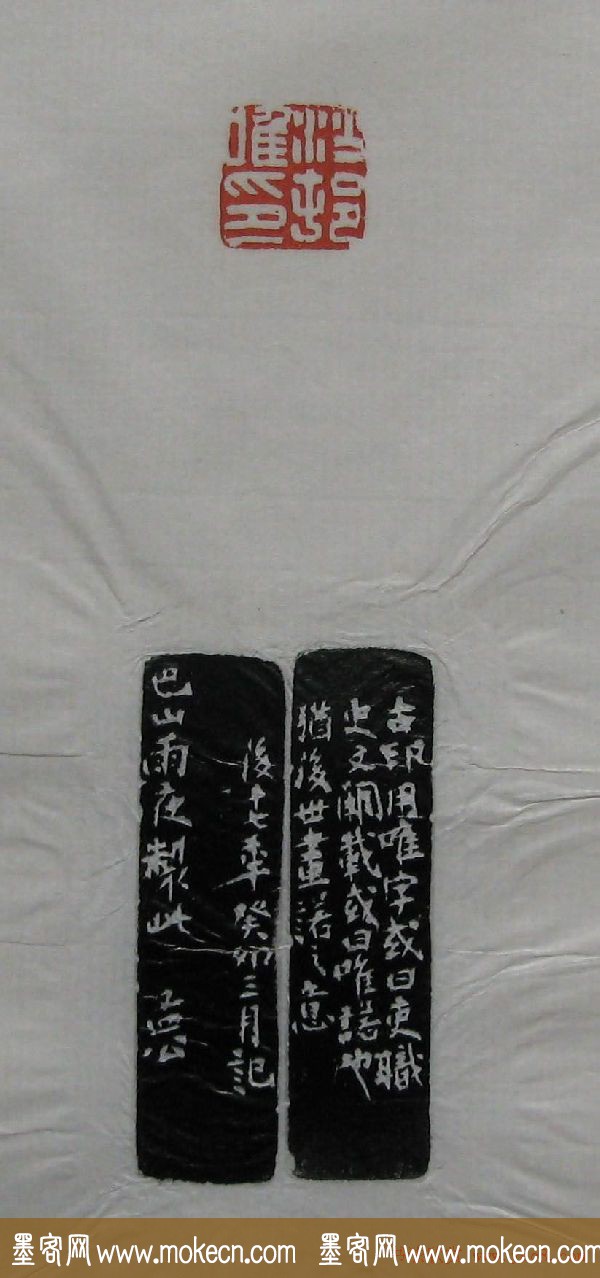 沙邨
唯印
古印用唯字或曰吏職
史文闕載或曰唯諾也
猶後世畫諾之意
後十七年癸卯三月記
巴山雨夜製此
墨客网 www.mokecn.com 墨客网 www.mokecn.com